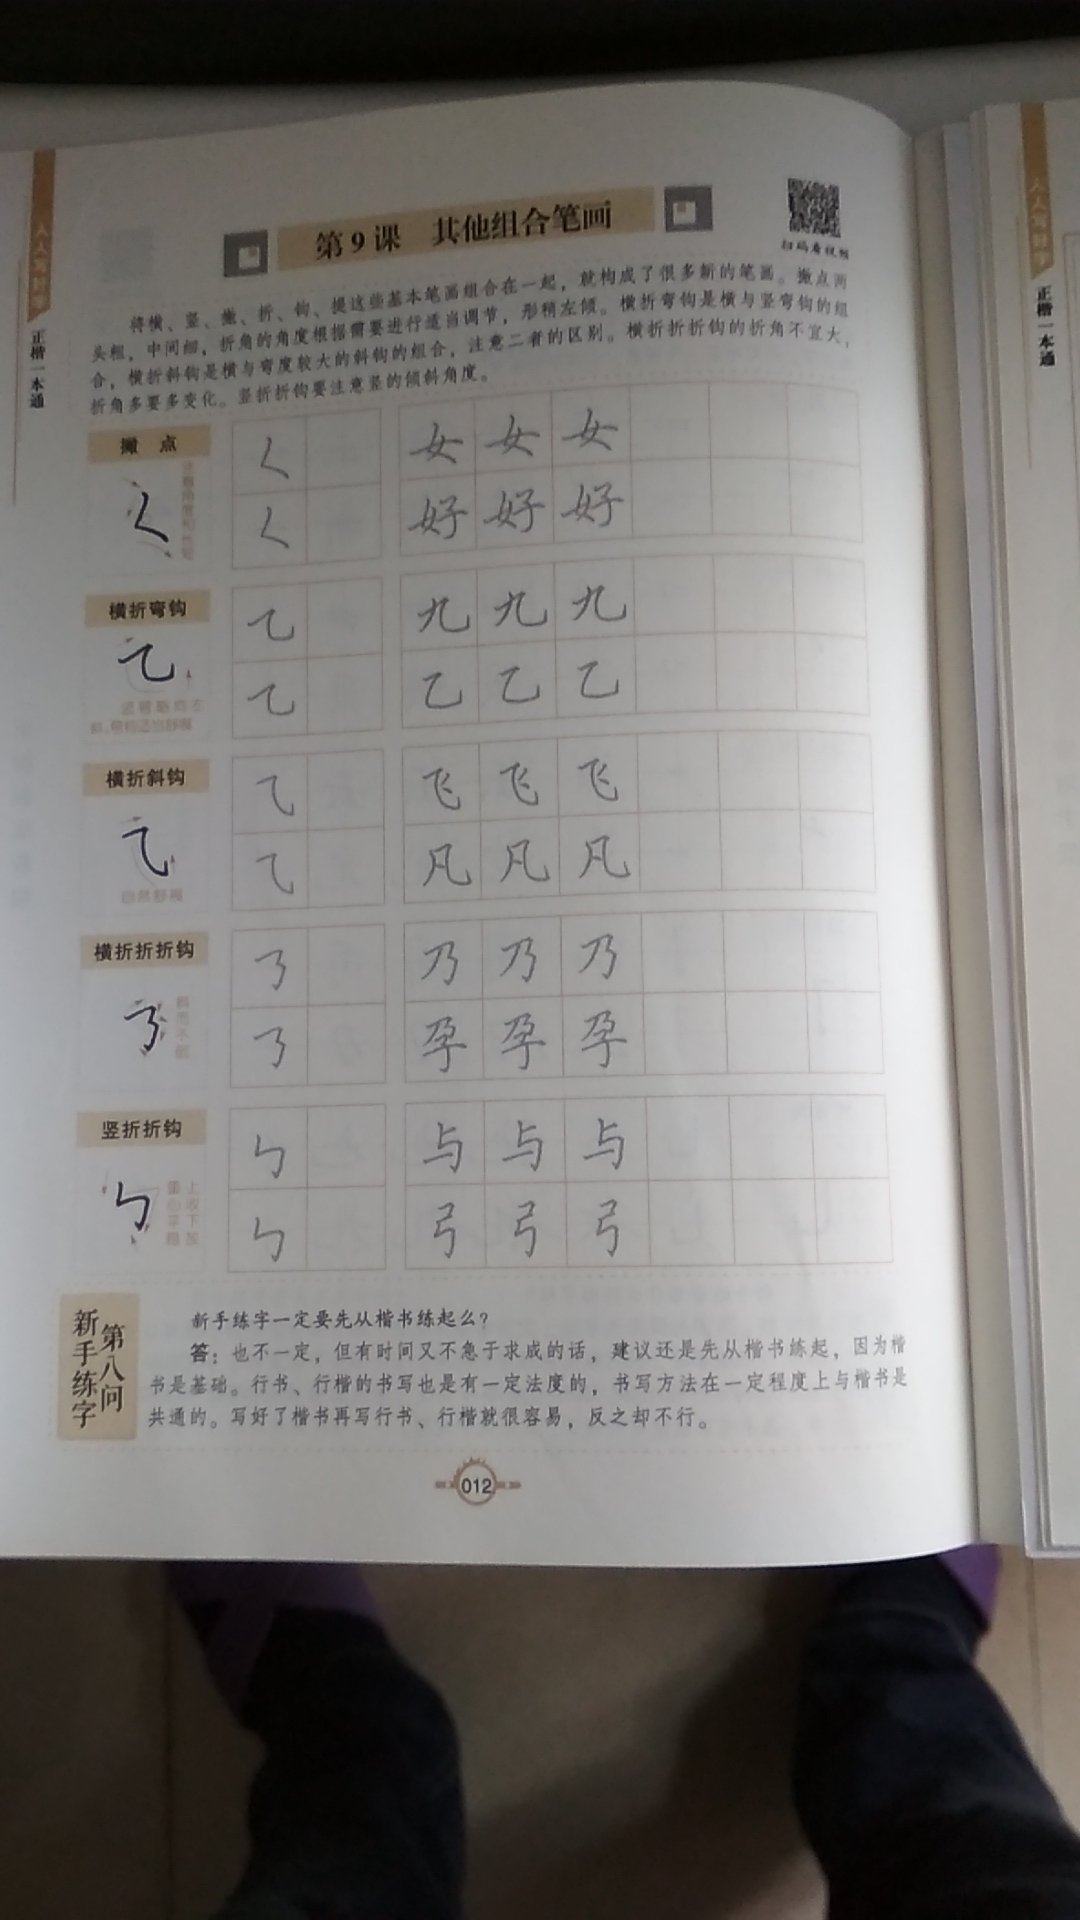 人人写好字
正楷一本通
第9课 其他组合笔画
扫码看视频
将横、竖、撇、折、钩、提这些基本笔画组合在一起，就构成了很多新的笔画。撇点两
头粗，中间细，折角的角度根据需要进行适当调节，形稍左倾。横折弯钩是横与竖弯钩的组
合，横折斜钩是横与弯度较大的斜钩的组合，注意二者的区别。横折折折钩的折角不宜大，
折角多要多变化。竖折折钩要注意竖的倾斜角度。
撇 点
女 女 女
好 好 好
横折弯钩
九 九 九
乙 乙 乙
横折斜钩
自然舒展
飞 飞 飞
凡 凡 凡
横折折折钩
乃 乃 乃
孕 孕 孕
竖折折钩
上收下放
重心平稳
与 与 与
弓 弓 弓
新手练字
第八问
新手练字一定要先从楷书练起么？
答：也不一定，但有时间又不急于求成的话，建议还是先从楷书练起，因为楷
书是基础。行书、行楷的书写也是有一定法度的，书写方法在一定程度上与楷书是
共通的。写好了楷书再写行书、行楷就很容易，反之却不行。
012
人人写好字
正楷一本通